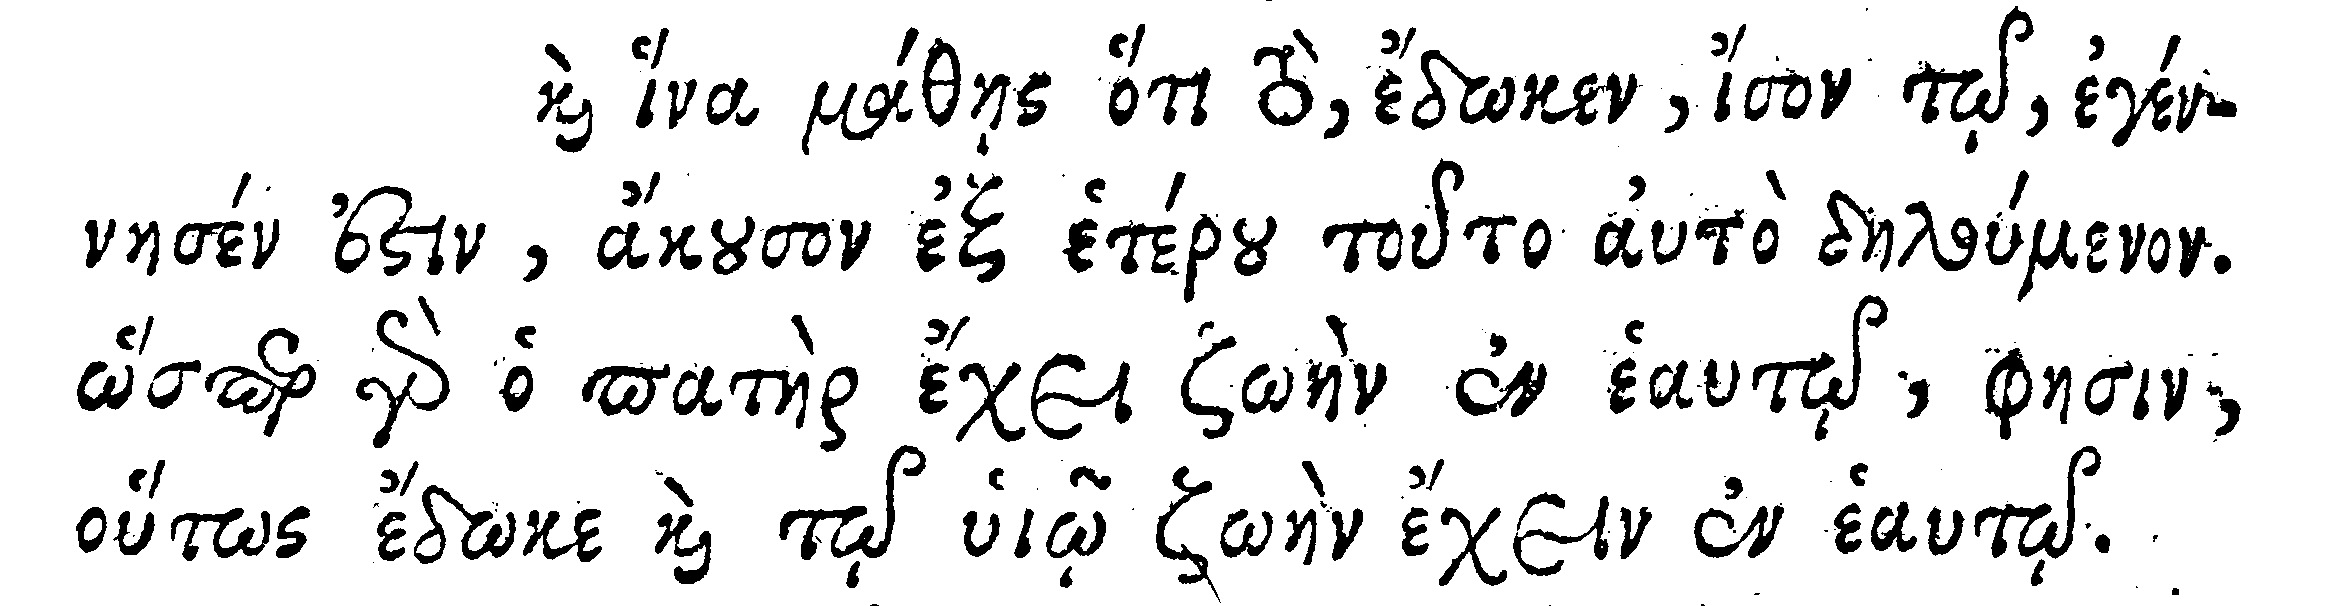 καὶ ἵνα μάθῃς ὅτι τὸ, ἔδωκεν, ἴσον τῷ, ἐγέν-
νησέν ἐστιν, ἄκουσον ἐξ ἑτέρου τοῦτο αὐτὸ δηλούμενον.
ὥσπερ γὰρ ὁ πατὴρ ἔχει ζωὴν ἐν ἑαυτῷ, φησιν,
οὕτως ἔδωκε καὶ τῷ υἱῷ ζωὴν ἔχειν ἐν ἑαυτῷ.